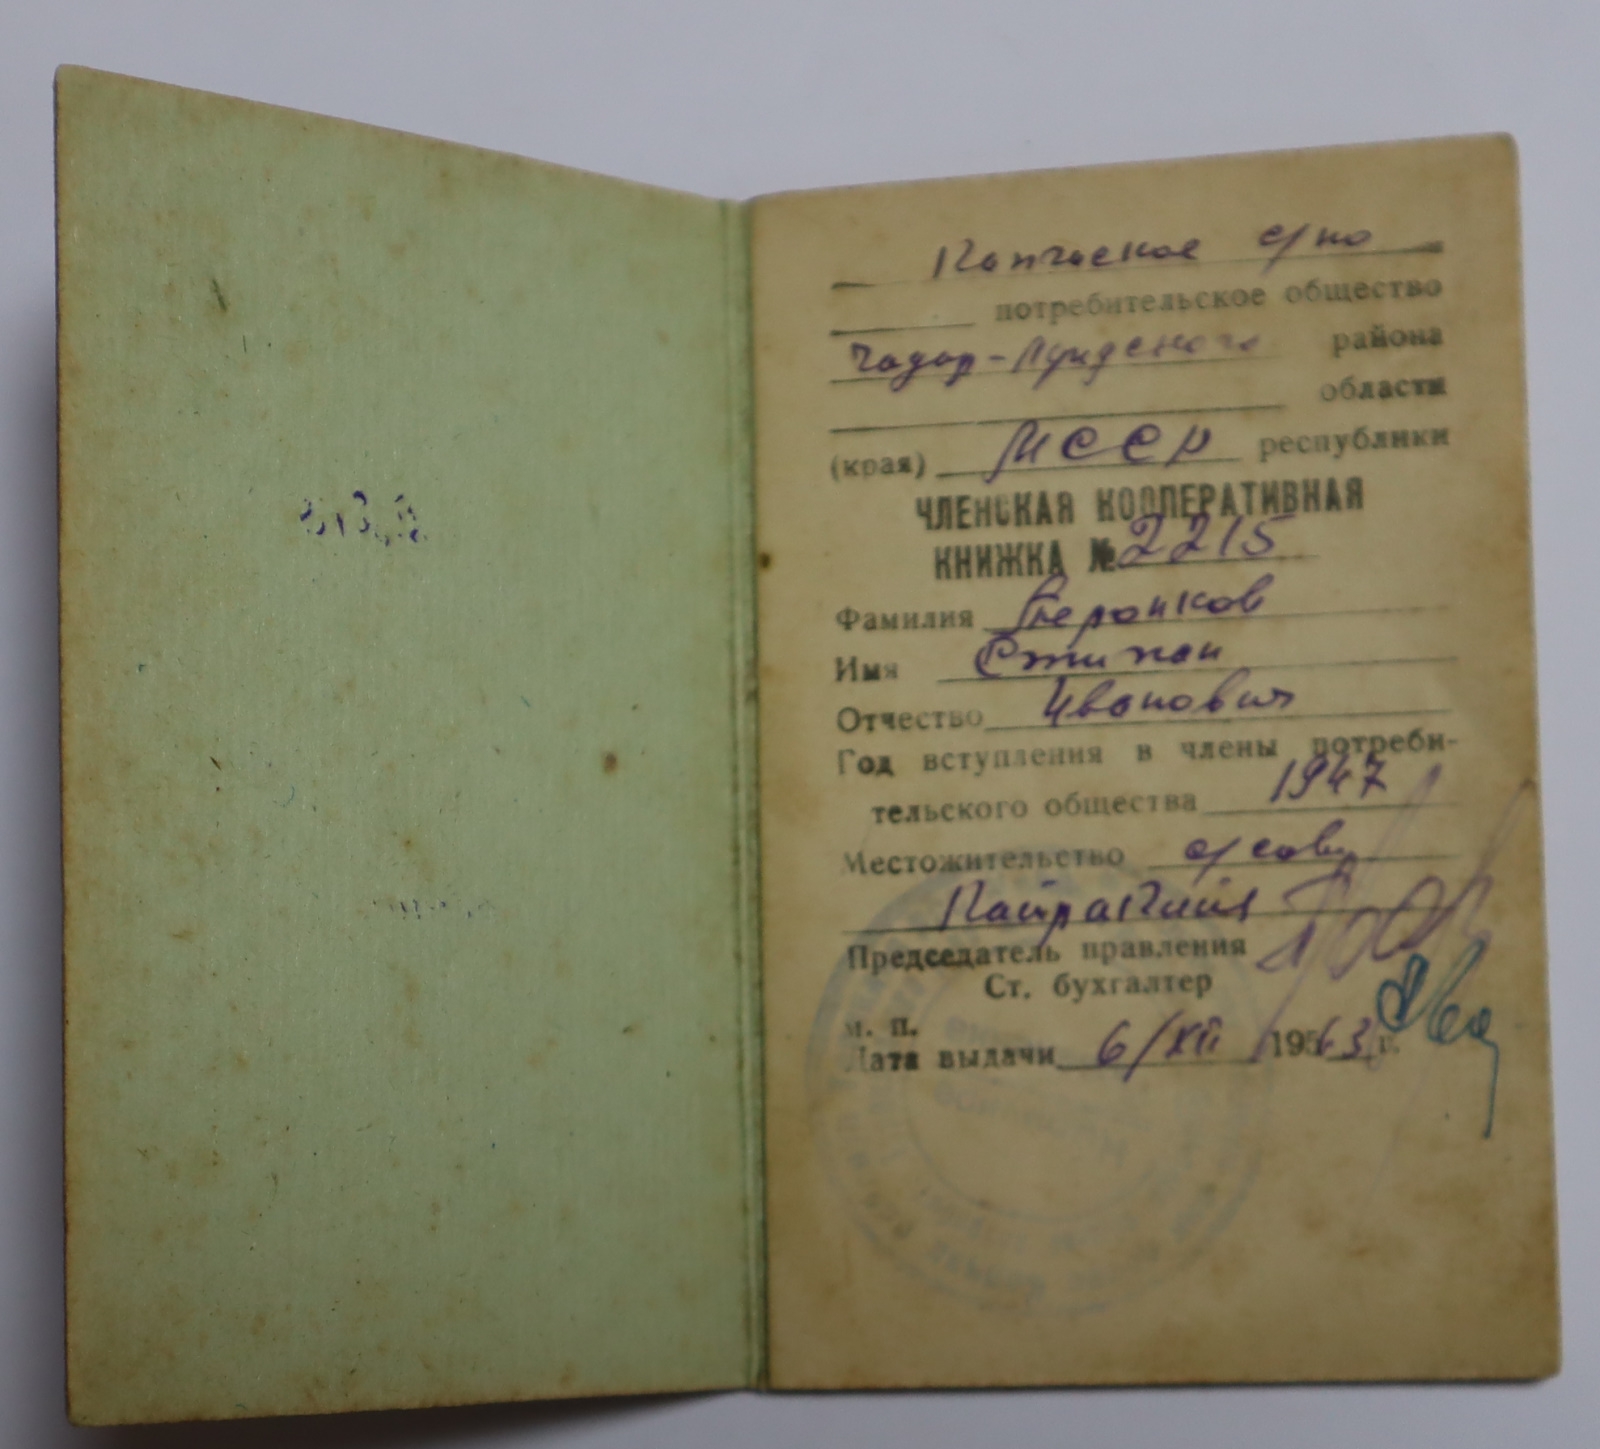 Капчаское с/по
потребительское общество
Чадыр-Лунгского района
области
(края) МССР республики
ЧЛЕНСКАЯ КООПЕРАТИВНАЯ
КНИЖКА № 2215
Фамилия
Имя Стипан
Отчество Иванович
Год вступления в члены потреби-
тельского общества 1947
Местожительство
Председатель правления
Ст. бухгалтер
м. п.
Дата выдачи 6/XII 1963 г.